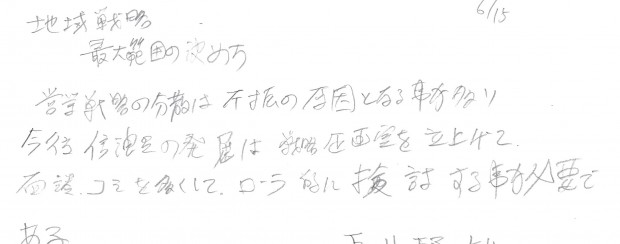 6/15
地域戦略
最大範囲の決め方
営業戦略の分散は 不振の原因となる事が多い
今後 信漣の発展は 戦略企画室を立上げて、
面談、コミを多くして、ローラ的に検討する事が必要で
ある